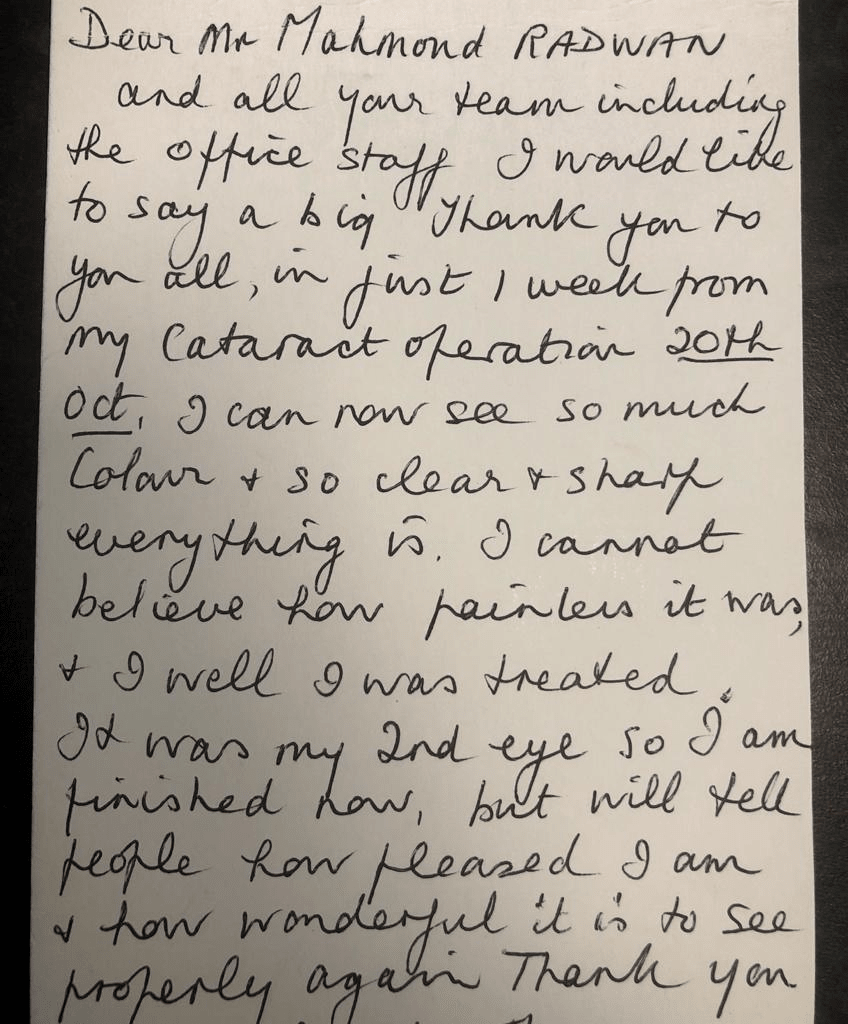 Dear Mr Mahmond RADWAN
and all your team including
the office staff I would like
to say a big Thank you to
you all, in just 1 week from
my Cataract operation 20th
Oct, I can now see so much
Colour + so clear + sharp
everything is. I cannot
believe how painless it was,
+ I well I was treated.
It was my 2nd eye so I am
finished now, but will tell
people how pleased I am
+ how wonderful it is to see
properly again Thank you